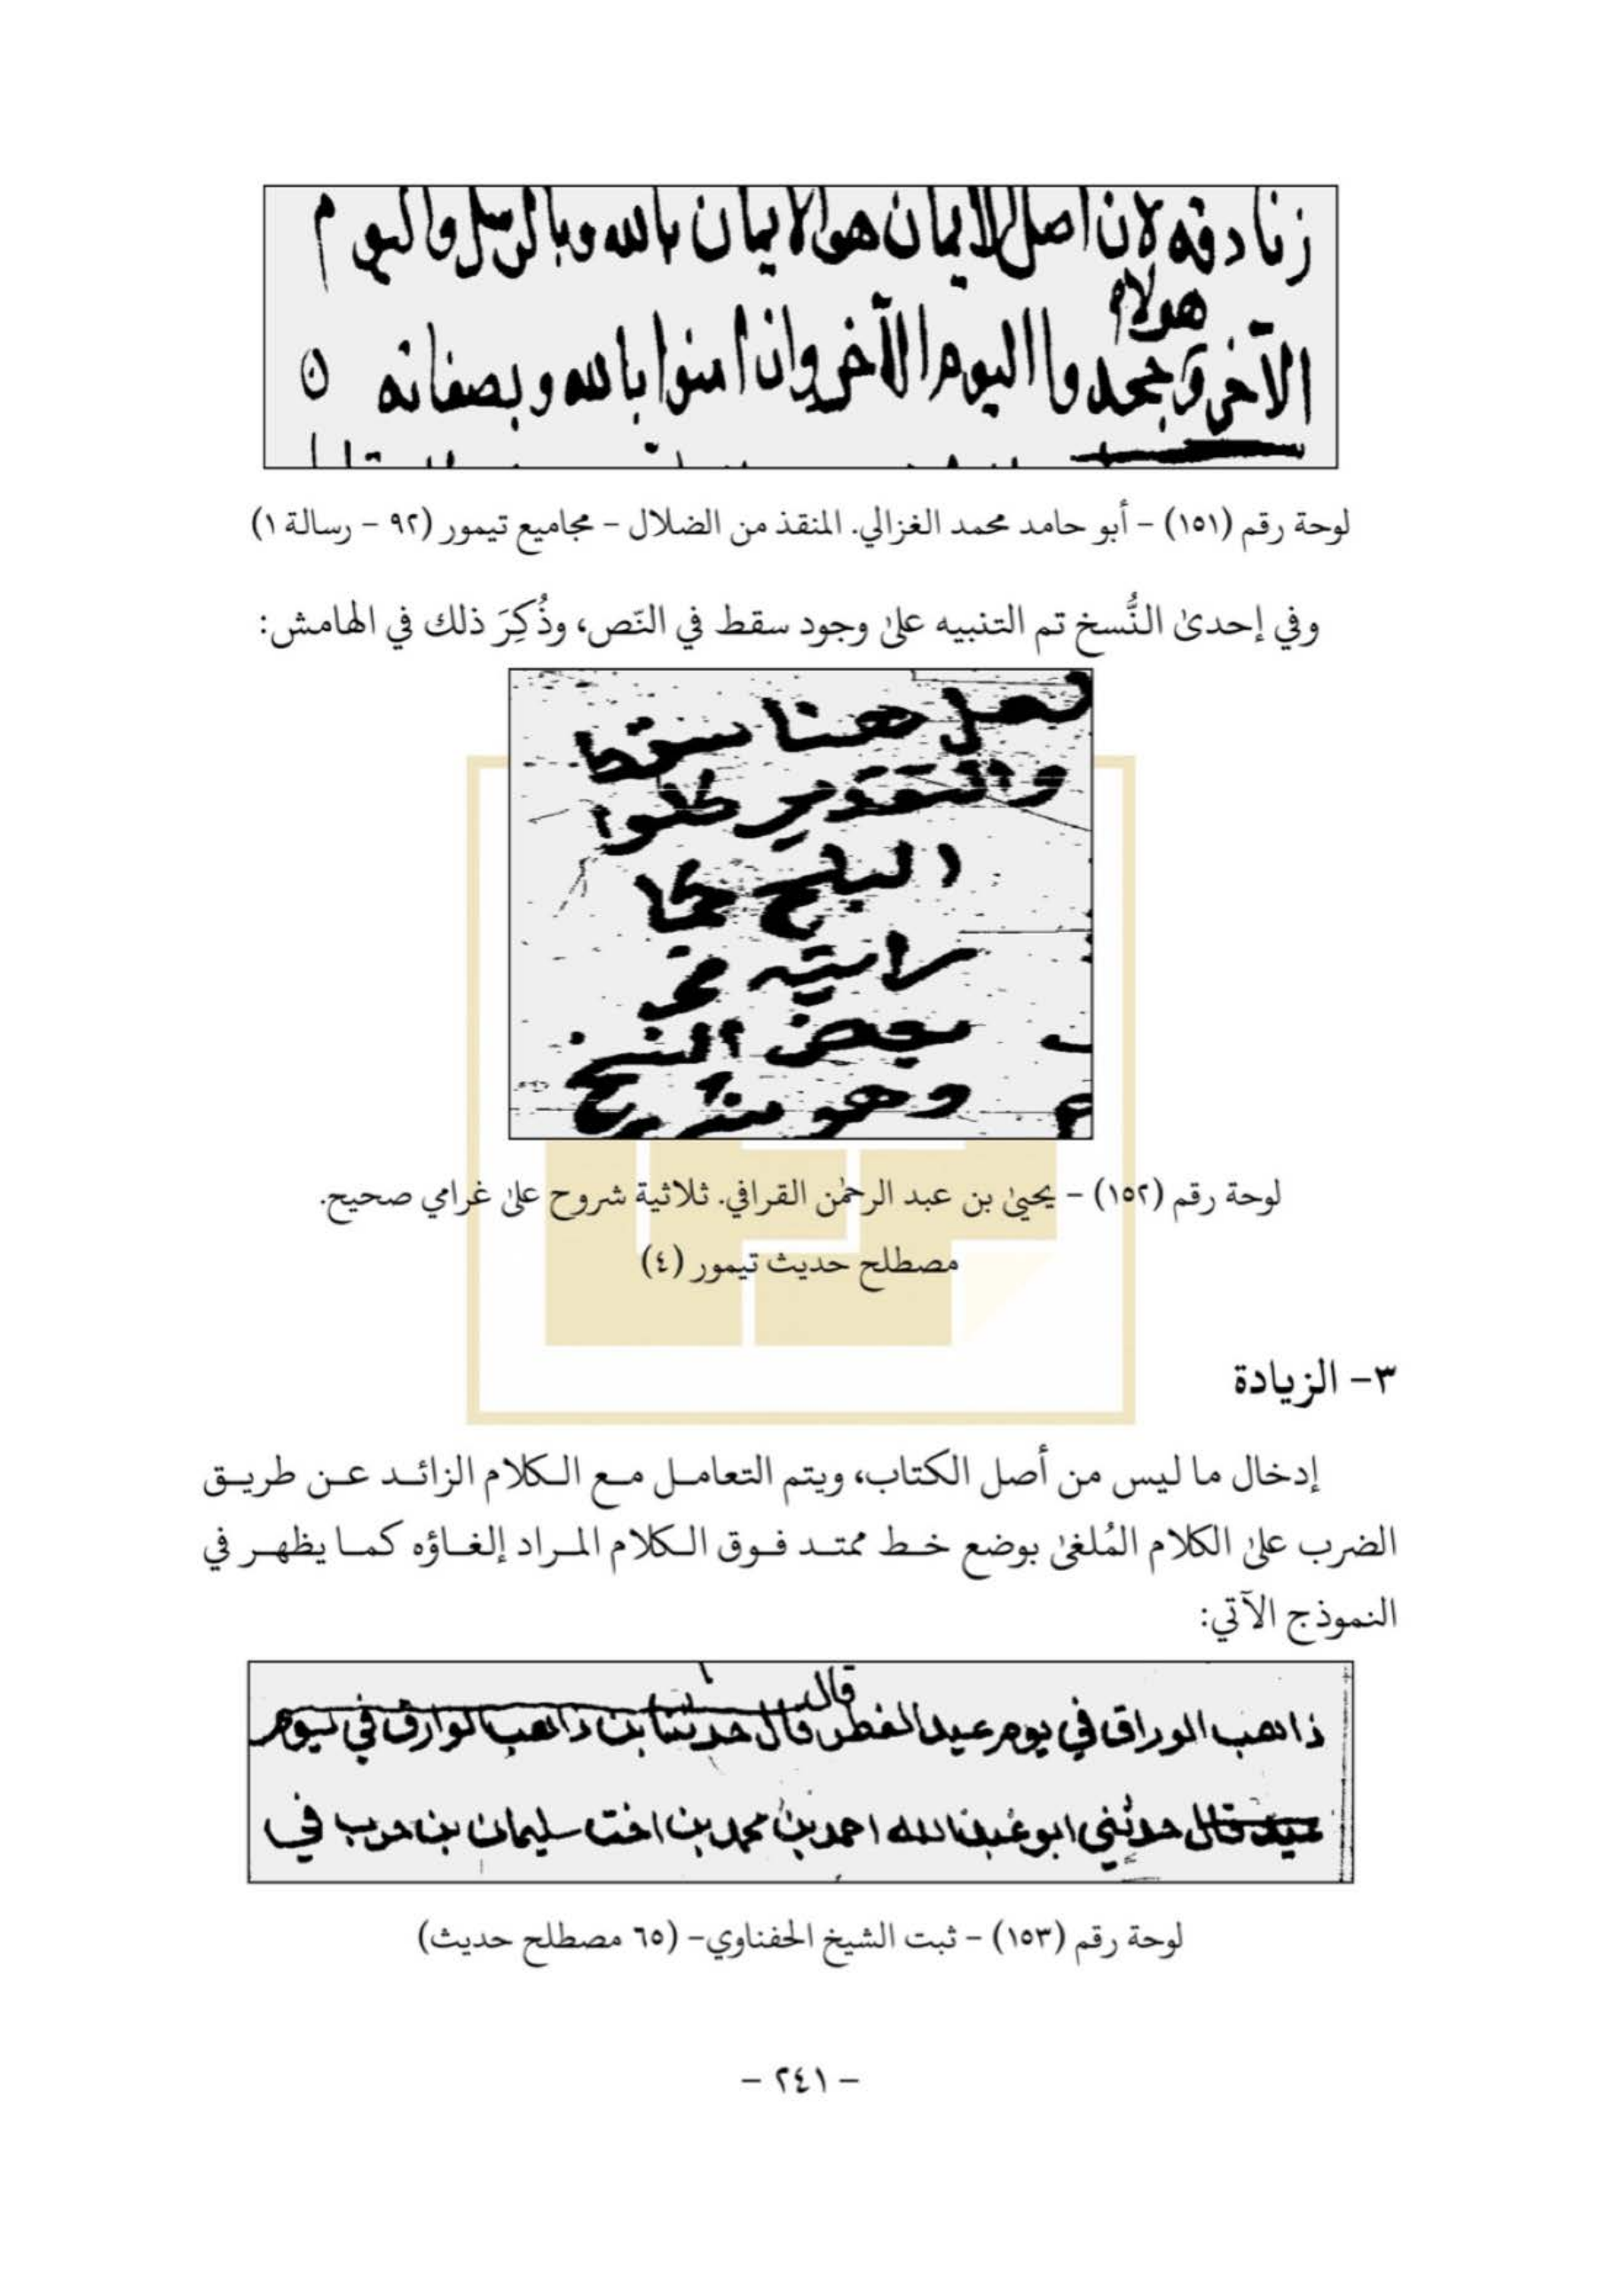 زنادقه لان اصل الايمان هو الايمان بالله وبالرسل واليوم
هولاء
الآخر وجحدوا اليوم الآخر وان امنوا بالله وبصفاته
لوحة رقم (١٥١) - أبو حامد محمد الغزالي. المنقذ من الضلال - مجاميع تيمور (٩٢ - رسالة ١)
وفي إحدىٰ النُّسخ تم التنبيه علىٰ وجود سقط في النّص، وذُكِرَ ذلك في الهامش:
لعل هنا سقط
والتقدير
البلح كما
رايته في
بعض النسخ
وهو
لوحة رقم (١٥٢) - يحيىٰ بن عبد الرحمٰن القرافي. ثلاثية شروح علىٰ غرامي صحيح.
مصطلح حديث تيمور (٤)
٣- الزيادة
إدخال ما ليس من أصل الكتاب، ويتم التعامـل مـع الـكلام الزائـد عـن طريـق
الضرب علىٰ الكلام المُلغىٰ بوضع خـط ممتـد فـوق الـكلام المـراد إلغـاؤه كمـا يظهـر في
النموذج الآتي:
قال
ذاهب الوراق في يوم عيد الفطر قال حدثنا بن ذاهب الوارق في ليوم
عيد قال حدثني ابو عبد الله احمد بن محمد بن اخت سليمان بن حرب في
لوحة رقم (١٥٣) - ثبت الشيخ الحفناوي- (٦٥ مصطلح حديث)
- ٢٤١ -